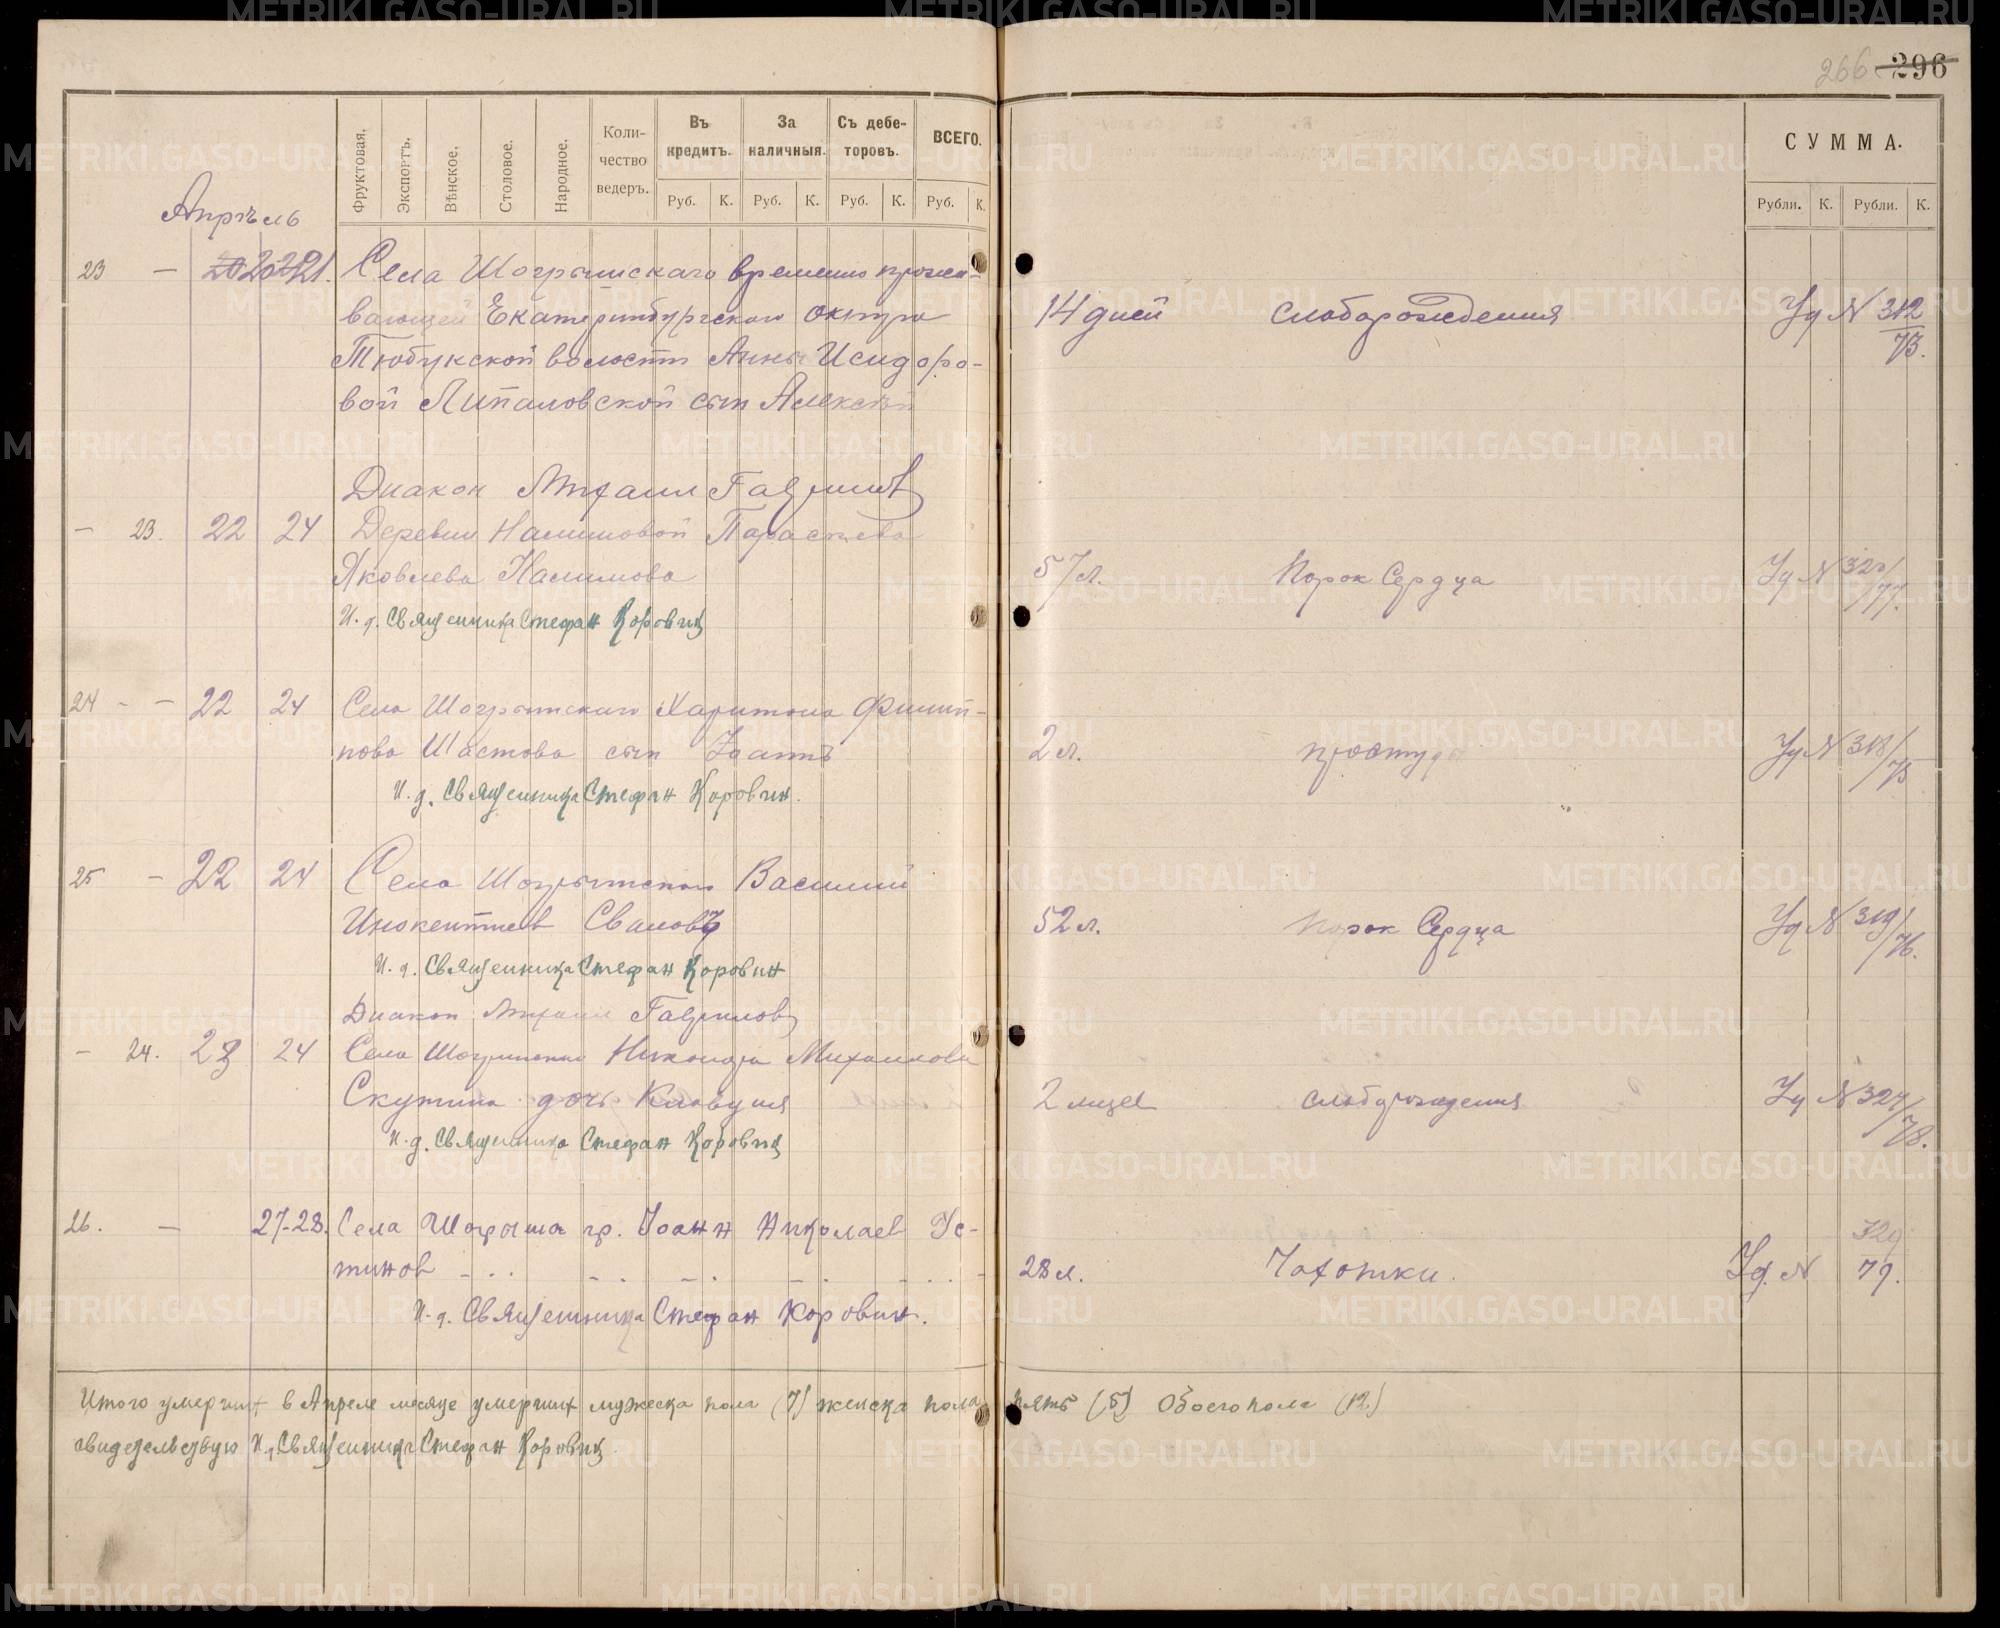 266 296
Фруктовая. Экспортъ. Вѣнское. Столовое. Народное. Количество ведеръ. Въ кредитъ. За наличныя. Съ дебеторовъ. ВСЕГО.
Руб. К. Руб. К. Руб. К. Руб. К.
СУММА.
Рубли. К. Рубли. К.
Апрѣль
23 — 20 21. Села Шогрышскаго временно прожи-
вающей Екатеринбургскаго округа
14 дней слаборождения Уд N 312/73.
Тюбукской волости Анны Исидоро-
вой Липаловской сын Алексѣй
Диакон Михаил Гаврилов
— 23. 22 24 Деревни Налимовой Параскева
Яковлева Налимова 57 л. Порок Сердца Уд N 320/77.
И. д. Священника Стефан Коровин
24 — — 22 24 Села Шогрышскаго Харитона Филип-
пова Шастова сын Іоаннъ 2 л. простуды Уд N 318/75
И. д. Священника Стефан Коровин.
25 — 22 24 Села Шогрышскаго Василий
Инокентиев Сваловъ 52 л. Порок Сердца Уд N 319/76.
И. д. Священника Стефан Коровин
Диакон Михаил Гаврилов
— 24. 23 24 Села Шогришскаго Никандра Михаилова
Скутина дочь Клавдия 2 месе слаборождения Уд N 327/78.
И. д. Священника Стефан Коровин
26. — 27-28. Села Шогрыша гр. Іоанн Николаев Ус-
тинов 28 л. Чахотки. Уд. N 329 79.
И. д. Священника Стефан Коровин.
Итого умерших в Апреле месяце умерших мужеска пола (7) женска пола пять (5) Обоего пола (12)
свидетельствую И. д. Священника Стефан Коровин.